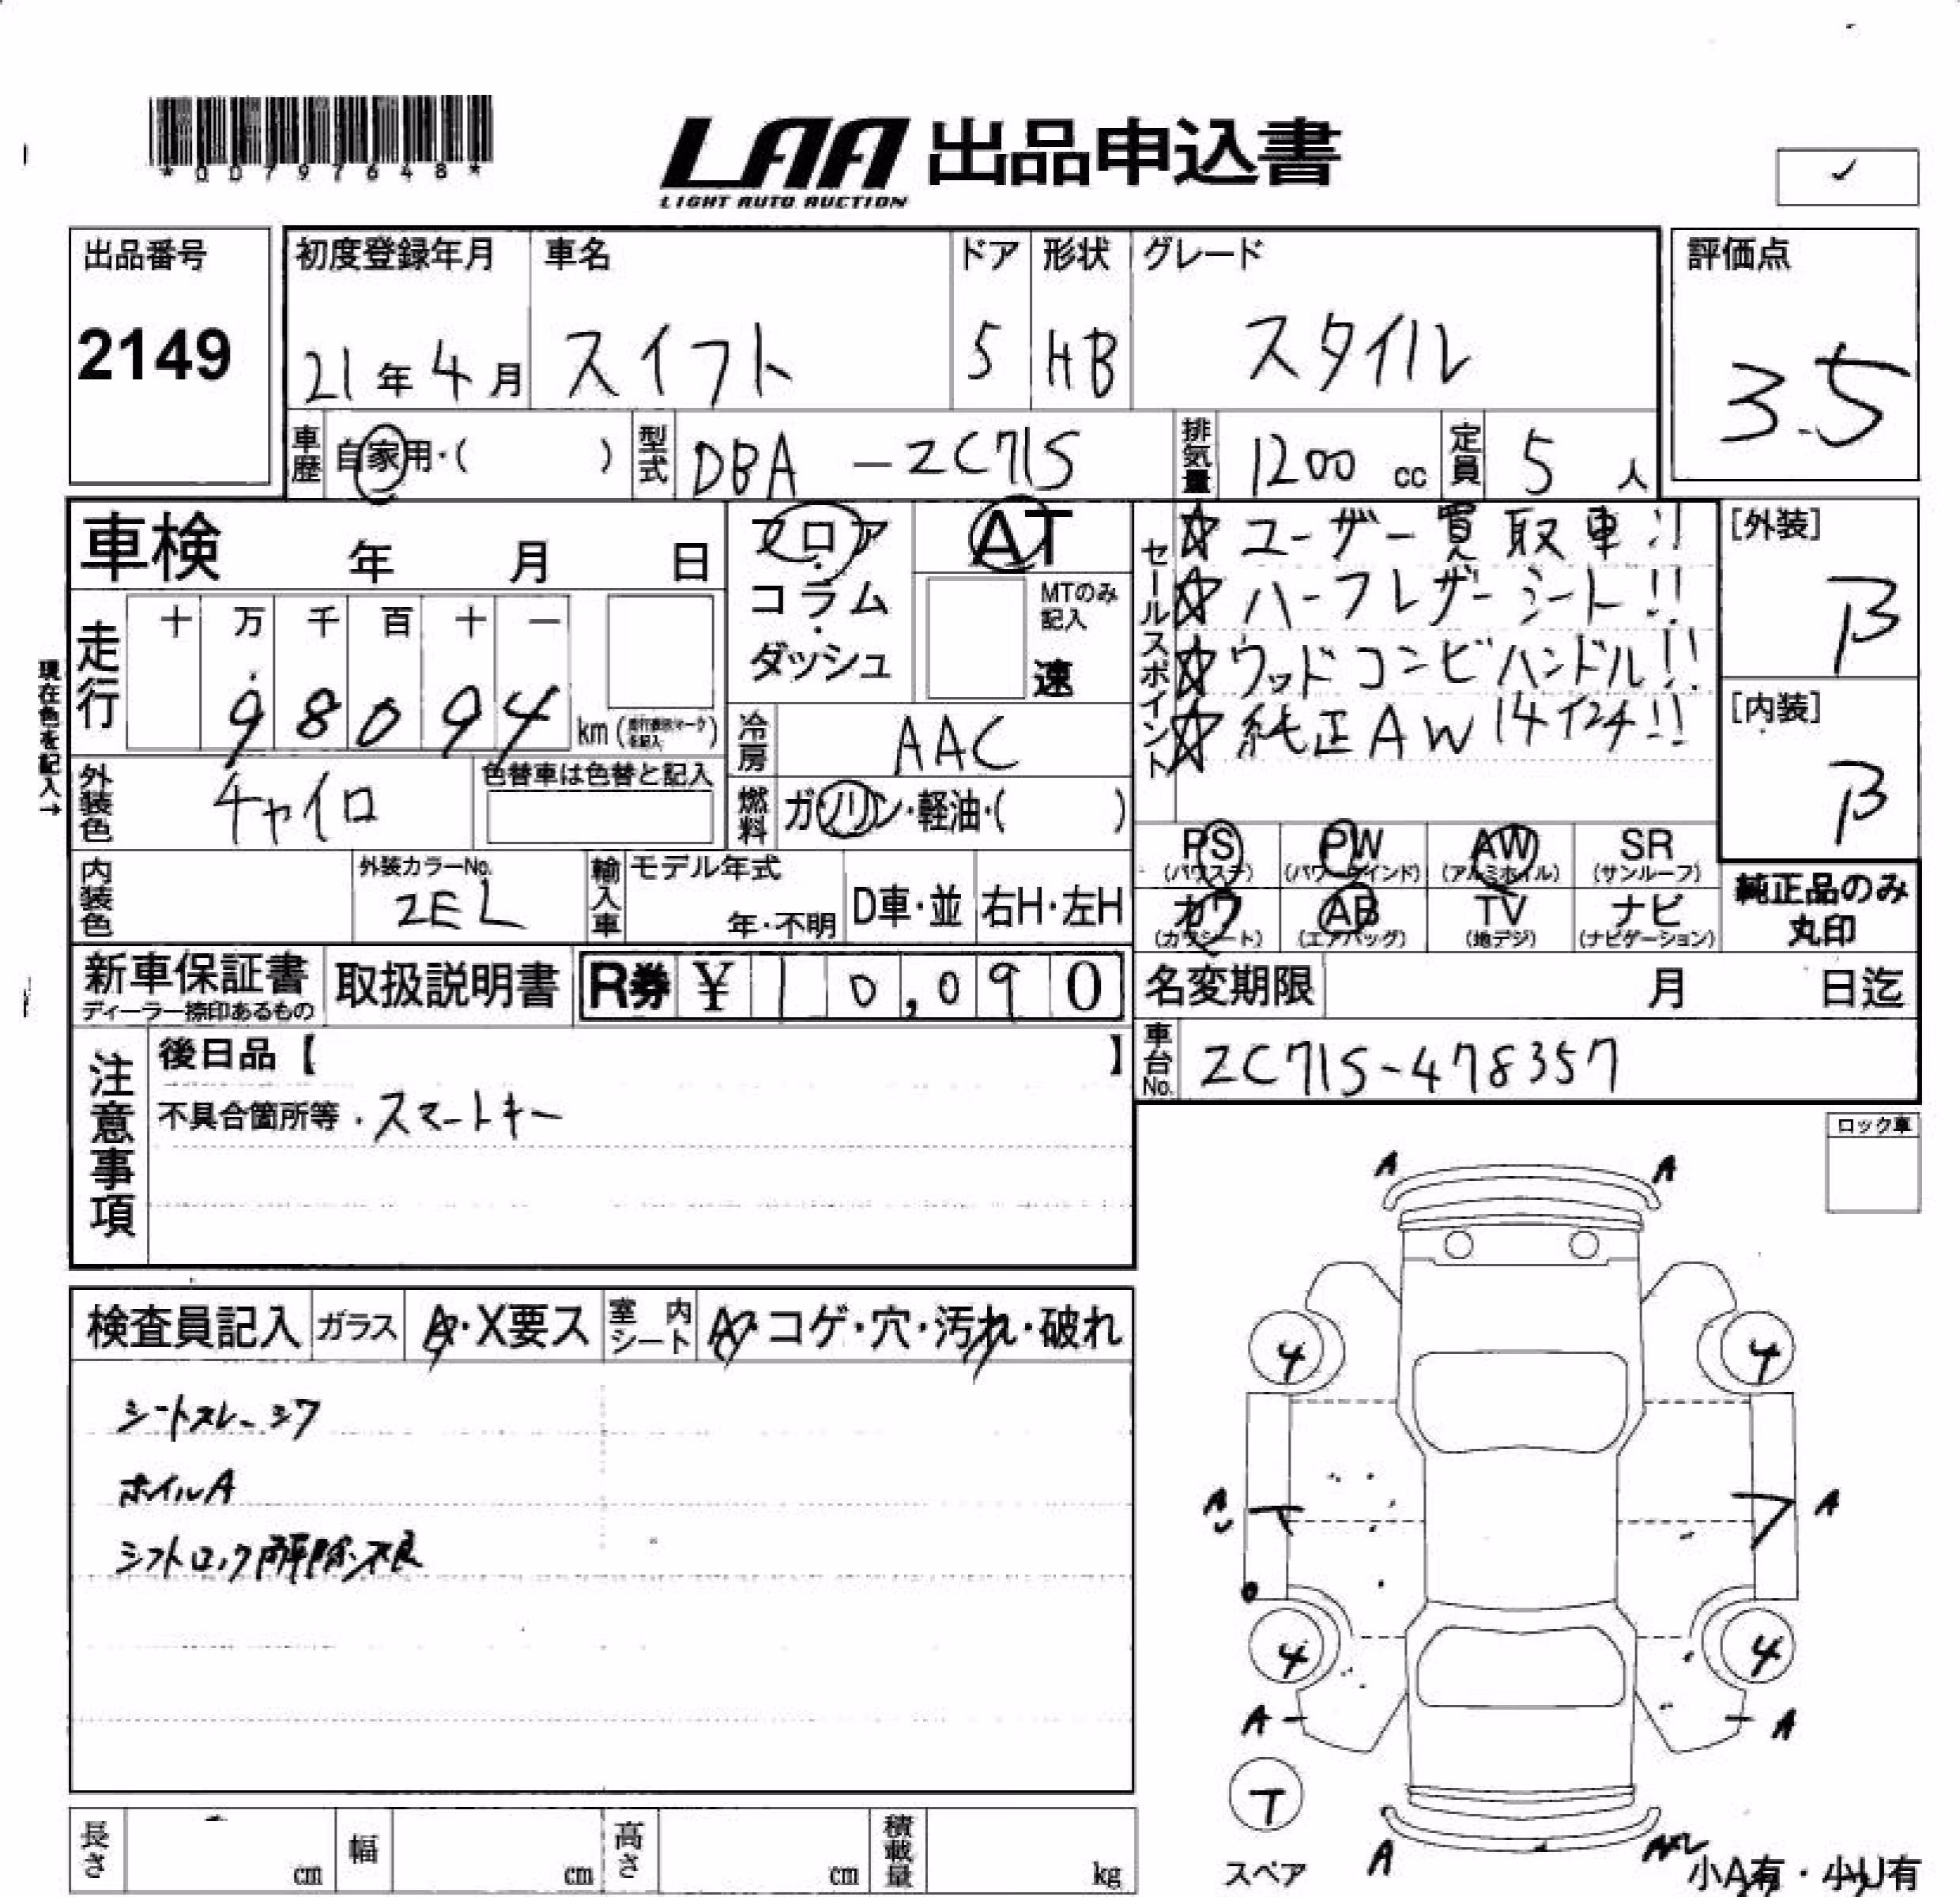 *00797648*
LAA 出品申込書
LIGHT AUTO AUCTION
✓
出品番号
2149
初度登録年月 車名 ドア 形状 グレード
21年4月 スイフト 5 HB スタイル
評価点
3.5
車歴 自家用・( ) 型式 DBA-ZC71S 排気量 1200cc 定員 5人
車検 年 月 日
フロア・コラム・ダッシュ
AT
MTのみ記入
速
セールスポイント
☆ユーザー買取車!!
☆ハーフレザーシート!!
☆ウッドコンビハンドル!!
☆純正AW14インチ!!
[外装]
B
[内装]
B
現在色を記入→
走行 十 万 千 百 十 一
98094 km
冷房 AAC
外装色 チャイロ 色替車は色替と記入
燃料 ガソリン・軽油・( )
PS PW AW SR
(パワステ) (パワーウインド) (アルミホイル) (サンルーフ)
カワ AB TV ナビ
(カワシート) (エアバッグ) (地デジ) (ナビゲーション)
純正品のみ丸印
内装色 外装カラーNo. ZEL
輸入車 モデル年式 年・不明 D車・並 右H・左H
新車保証書
ディーラー捺印あるもの
取扱説明書 R券 ¥10,090
名変期限 月 日迄
車台No. ZC71S-478357
注意事項
後日品【 】
不具合箇所等・スマートキー
ロック車
検査員記入 ガラス A・X要ス 室内シート A・コゲ・穴・汚れ・破れ
シートスレ・シワ
ホイルA
シフトロック解除不良
A A
4 4
A A
4 4
A A
T
スペア
A
小A有・小U有
長さ cm 幅 cm 高さ cm 積載量 kg